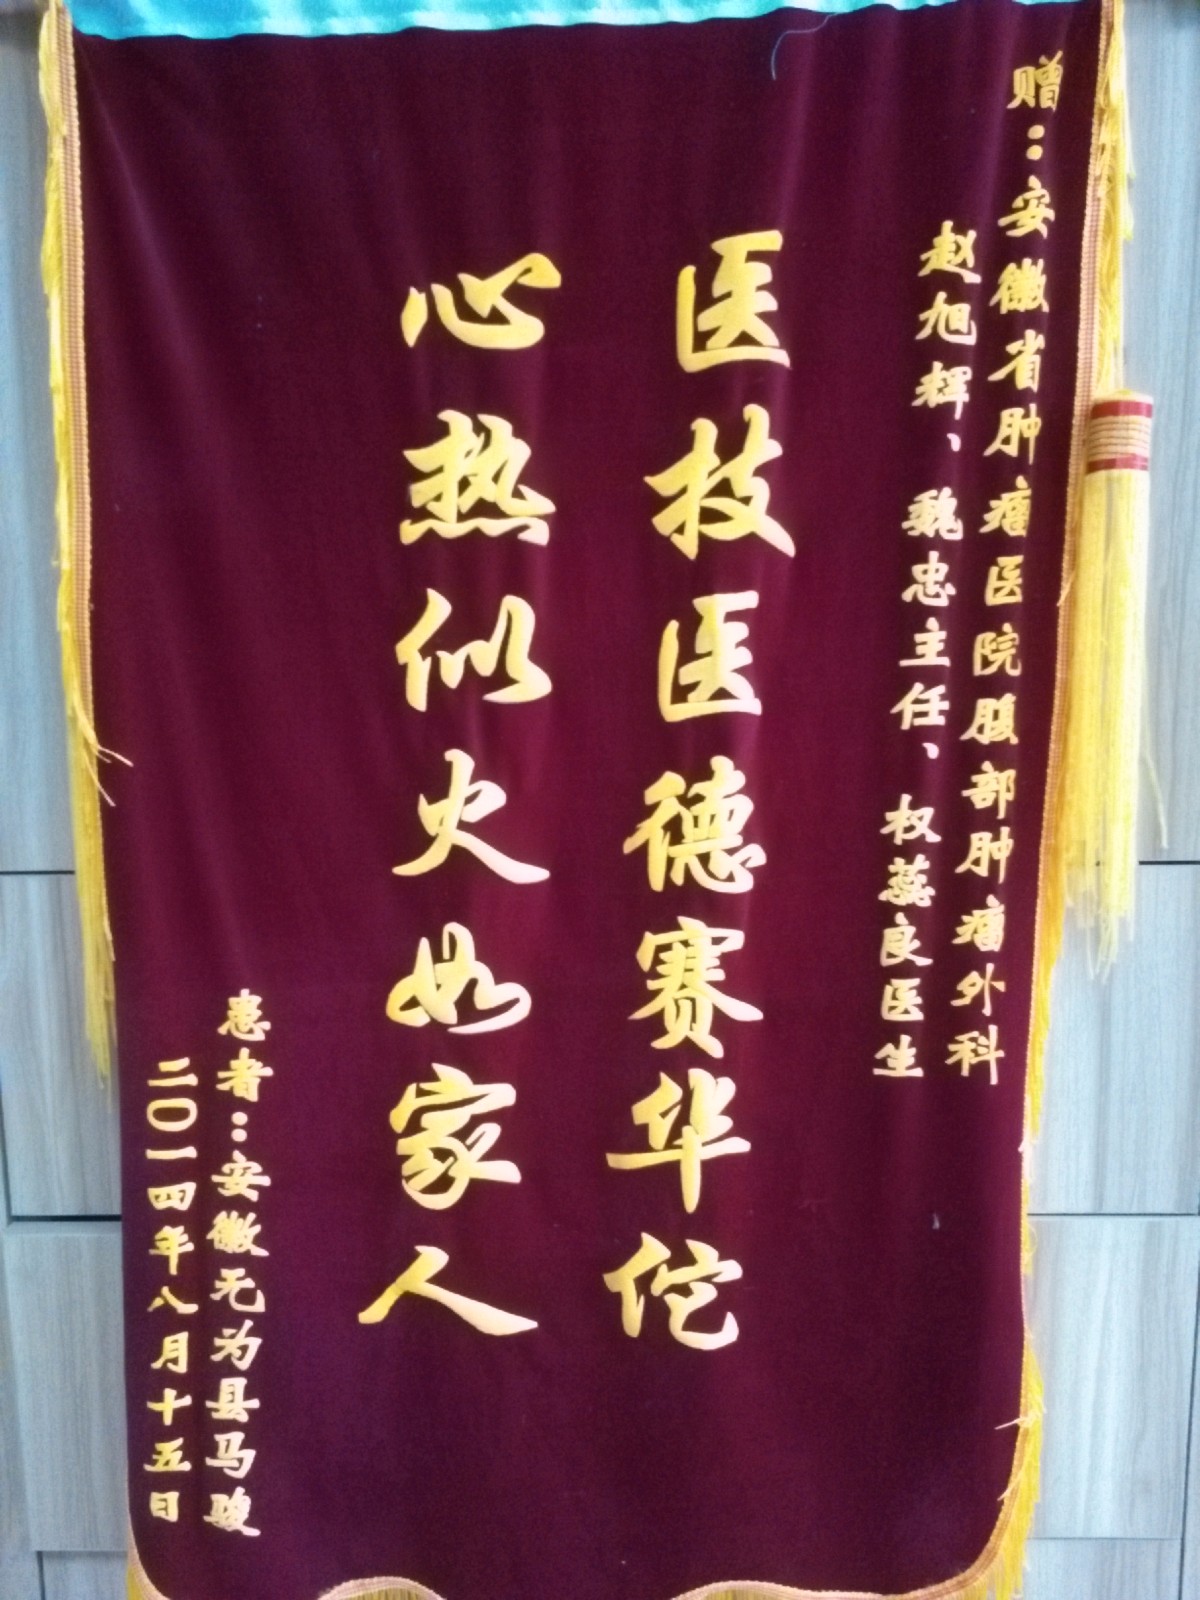 赠：安徽省肿瘤医院腹部肿瘤外科
赵旭辉、魏忠主任、权蕊良医生
医技医德赛华佗
心热似火如家人
患者：安徽无为县马骏
二〇一四年八月十五日